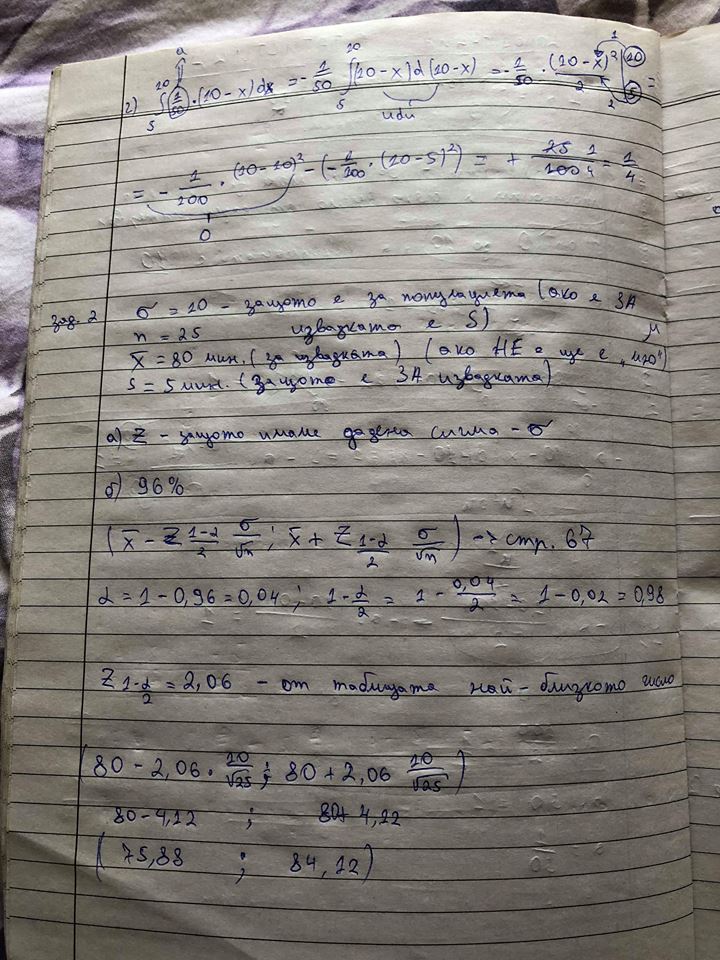 a
г) ∫₅¹⁰ (1/50)·(10-x)dx = -1/50 ∫₅¹⁰ (10-x)d(10-x) = -1/50 · (10-x)²/2 |₅¹⁰ =
udu
= -1/100 · (10-10)² - (-1/100 · (10-5)²) = + 25/100 = 1/4
0
зад. 2 σ = 10 - защото е за популацията (ако е ЗА
n = 25 извадката е S)
x̄ = 80 мин. (за извадката) (ако НЕ е ще е "мю") μ
s = 5 мин. (защото е ЗА извадката)
а) Z - защото имаме дадена сигма - σ
б) 96%
(x̄ - Z 1-α/2 σ/√n ; x̄ + Z 1-α/2 σ/√n) -> стр. 67
α = 1 - 0,96 = 0,04 ; 1-α/2 = 1 - 0,04/2 = 1 - 0,02 = 0,98
Z 1-α/2 = 2,06 - от таблицата най-близкото число
(80 - 2,06 · 10/√25 ; 80 + 2,06 10/√25)
80 - 4,12 ; 80 + 4,12
(75,88 ; 84,12)